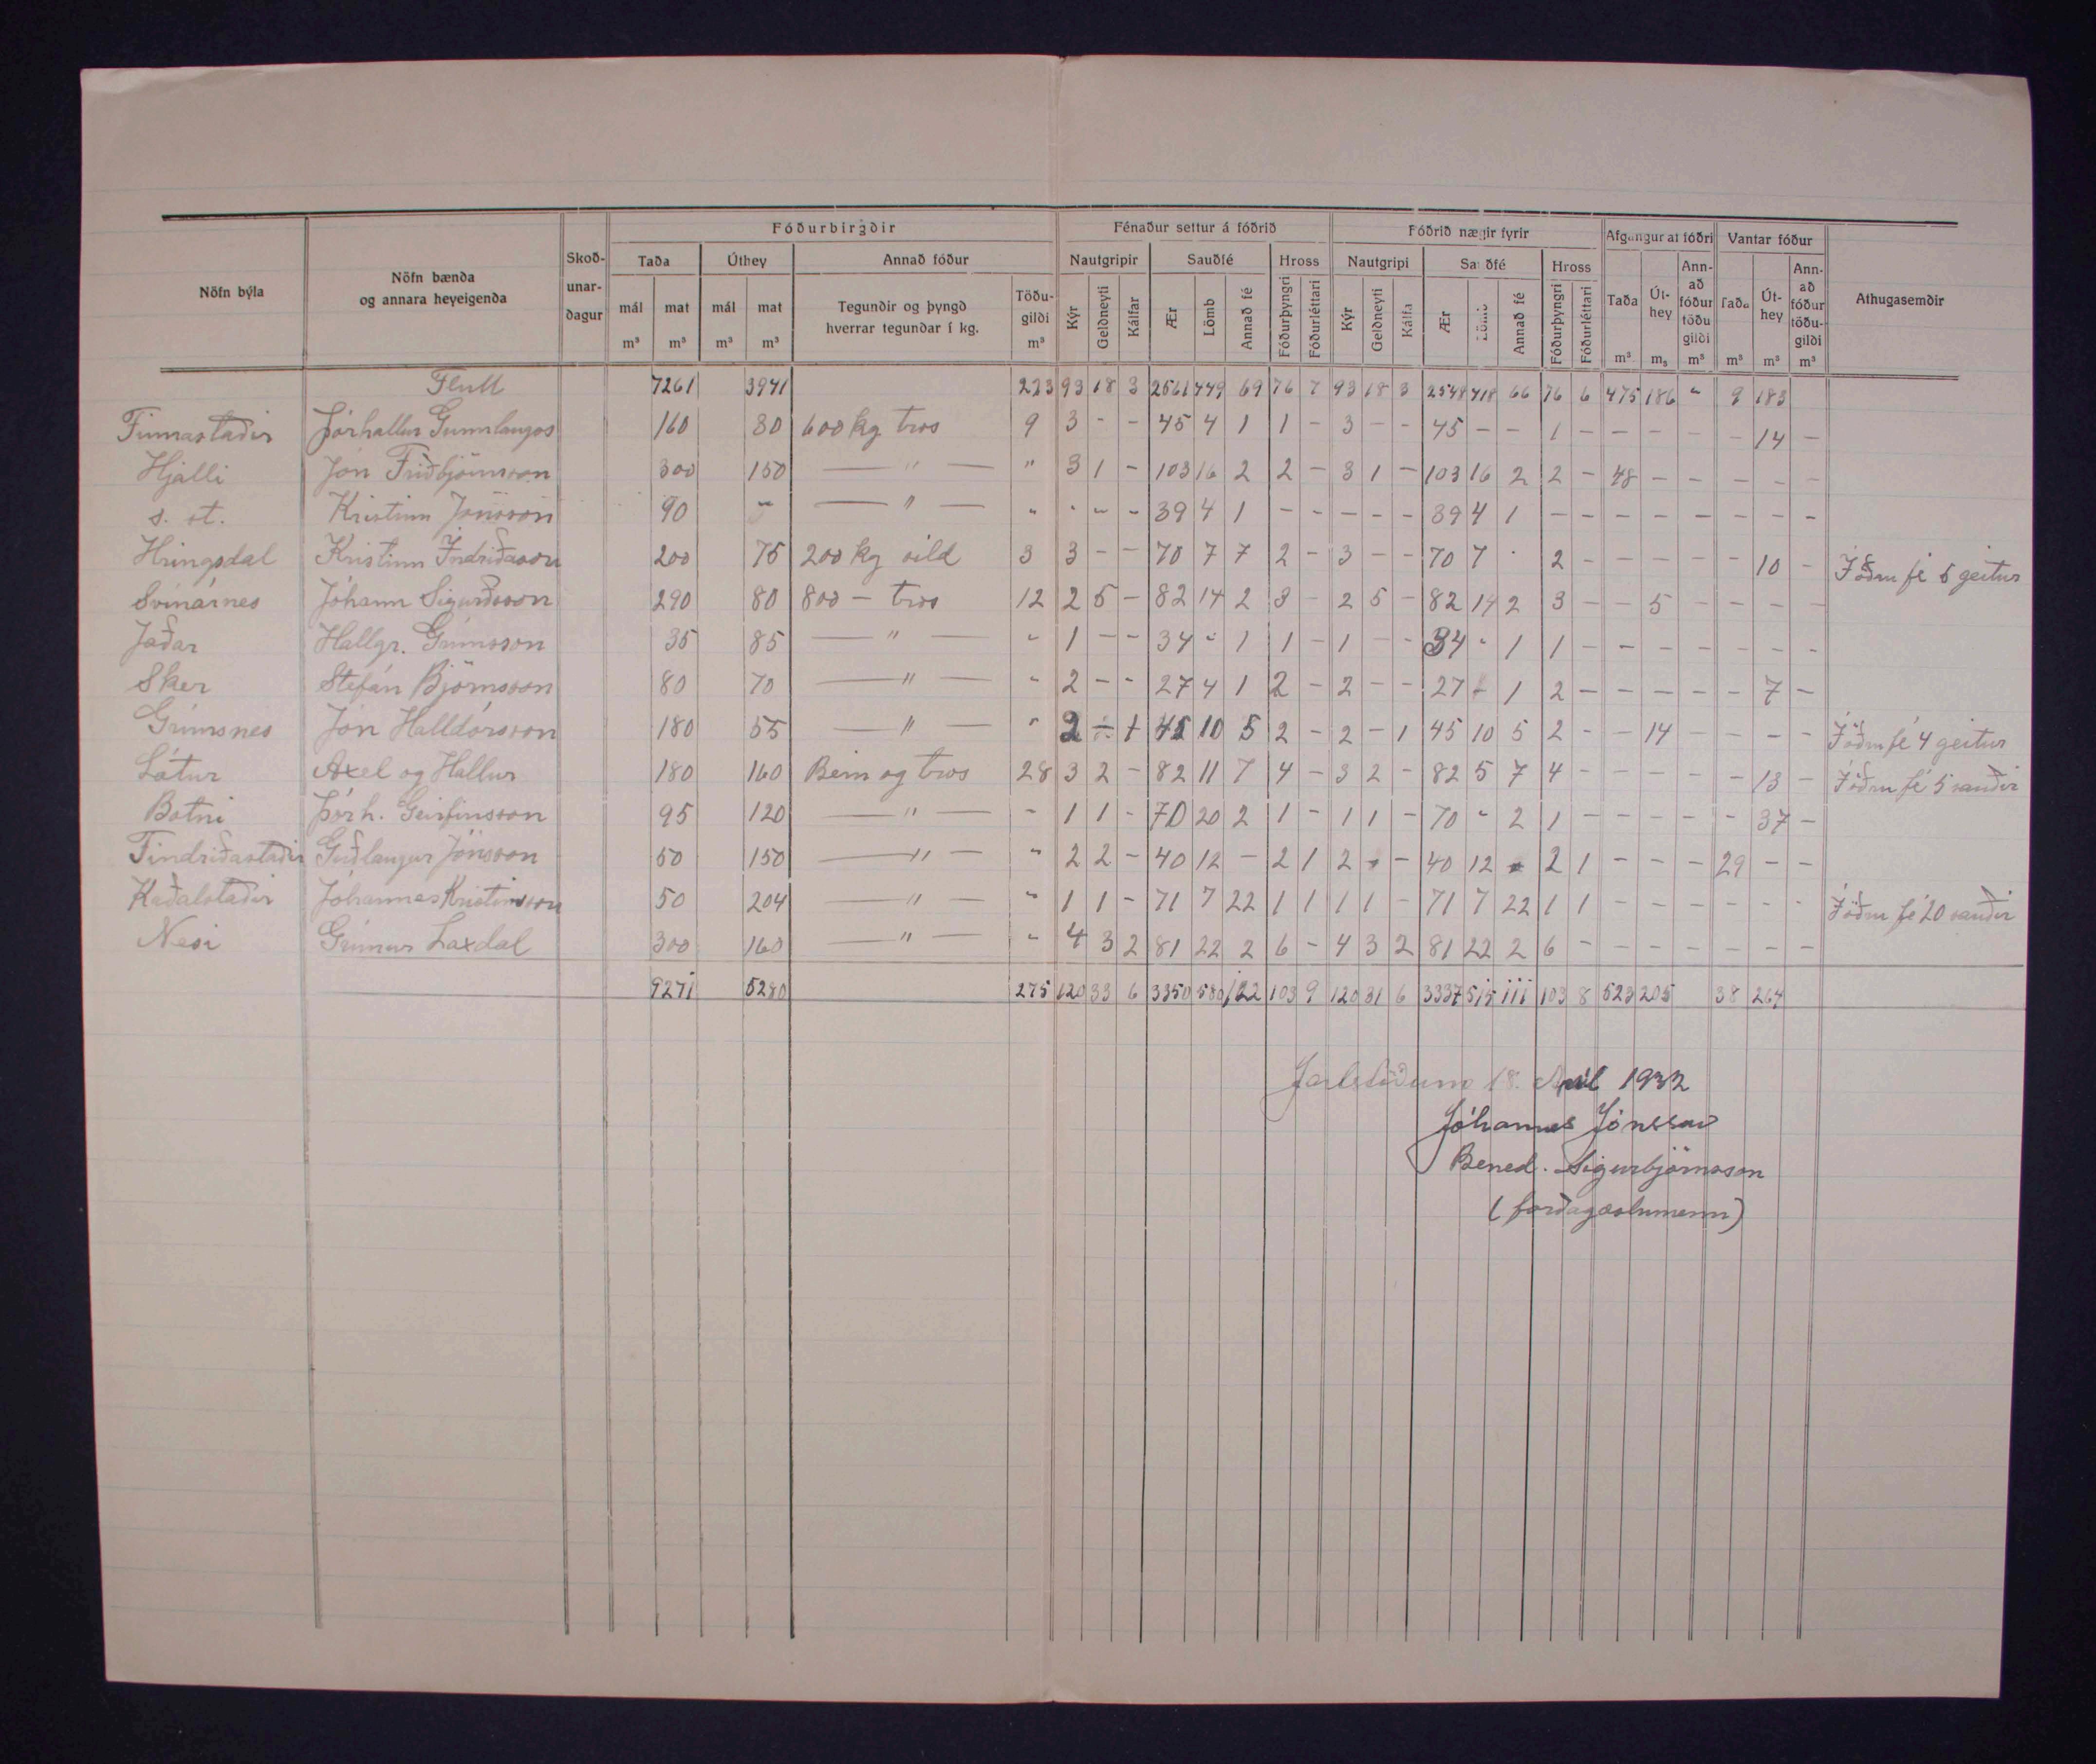 Fóðurbirgðir Fénaður settur á fóðrið Fóðrið nægir fyrir Afgangur af fóðri Vantar fóður
Nöfn býla Nöfn bænda og annara heyeigenda Skoð-unar-dagur Taða Úthey Annað fóður Nautgripir Sauðfé Hross Nautgripi Sauðfé Hross Taða Út-hey Ann-að fóður töðu gildi Taða Út-hey Ann-að fóður töðu-gildi Athugasemdir
mál mat mál mat Tegundir og þyngd hverrar tegundar í kg. Töðu-gildi Kýr Geldneyti Kálfar Ær Lömb Annað fé Fóðurþyngri Fóðurléttari Kýr Geldneyti Kálfa Ær Lömb Annað fé Fóðurþyngri Fóðurléttari
m³ m³ m³ m³ m³ m³ m³ m³ m³ m³ m³
Flutt 7261 3941 223 93 18 3 2561 449 69 76 7 93 18 3 2548 418 66 76 6 475 186 " 9 183
Finnastaðir Þórhallur Gunnlaugss 160 80 600 kg tros 9 3 - - 45 4 1 1 - 3 - - 45 - - 1 - - - - - 14 -
Hjalli Jón Friðbjörnsson 300 150 — " — " 3 1 - 103 16 2 2 - 3 1 - 103 16 2 2 - 48 - - - - -
s. st. Kristinn Jónsson 90 " — " — " " " " 39 4 1 - - - - - 39 4 1 - - - - - - - -
Hringsdal Kristinn Indriðason 200 75 200 kg síld 3 3 - - 70 7 7 2 - 3 - - 70 7 · 2 - - - - - 10 - Í öðru fé 5 geitur
Svínárnes Jóhann Sigurðsson 290 80 800 - tros 12 2 5 - 82 14 2 3 - 2 5 - 82 14 2 3 - - 5 - - - -
Jaðar Hallgr. Grímsson 35 85 — " — " 1 - - 34 " 1 1 - 1 - - 34 " 1 1 - - - - - - -
Sker Stefán Björnsson 80 70 — " — " 2 - - 27 4 1 2 - 2 - - 27 - 1 2 - - - - - 7 -
Grímsnes Jón Halldórsson 180 55 — " — " 2 ÷ 1 45 10 5 2 - 2 - 1 45 10 5 2 - - 14 - - - - Í öðru fé 4 geitur
Látur Axel og Hallur 180 160 Bein og tros 28 3 2 - 82 11 7 4 - 3 2 - 82 5 7 4 - - - - - 13 - Í öðru fé 5 sauðir
Botni Þórh. Geirfinsson 95 120 — " — - 1 1 - 70 20 2 1 - 1 1 - 70 " 2 1 - - - - - 37 -
Tindriðastaðir Guðlaugur Jónsson 50 150 — " — " 2 2 - 40 12 - 2 1 2 - - 40 12 - 2 1 - - - 29 - -
Kaðalstaðir Jóhannes Kristinsson 50 204 — " — " 1 1 - 71 7 22 1 1 1 1 - 71 7 22 1 1 - - - - - - Í öðru fé 20 sauðir
Nesi Grímur Laxdal 300 160 — " — " 4 3 2 81 22 2 6 - 4 3 2 81 22 2 6 - - - - - - -
9271 5280 275 120 33 6 3350 580 122 103 9 120 31 6 3337 515 111 103 8 523 205 38 264
18. Apríl 1932
Jóhannes Jónsson
Bened. Sigurbjörnsson
(forðagæslumenn)